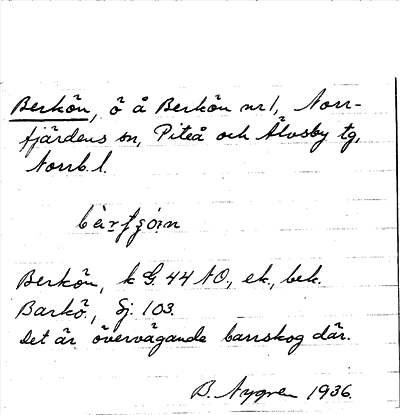 Berkön, ö å Berkön nr 1, Norr-
fjärdens sn, Piteå och Älvsby tg,
Norrb. l.
Berkön, k G. 44 NO., ek., bek.
Barkö, Sj. 103.
Det är övervägande barrskog där.
B. Nygren 1936.